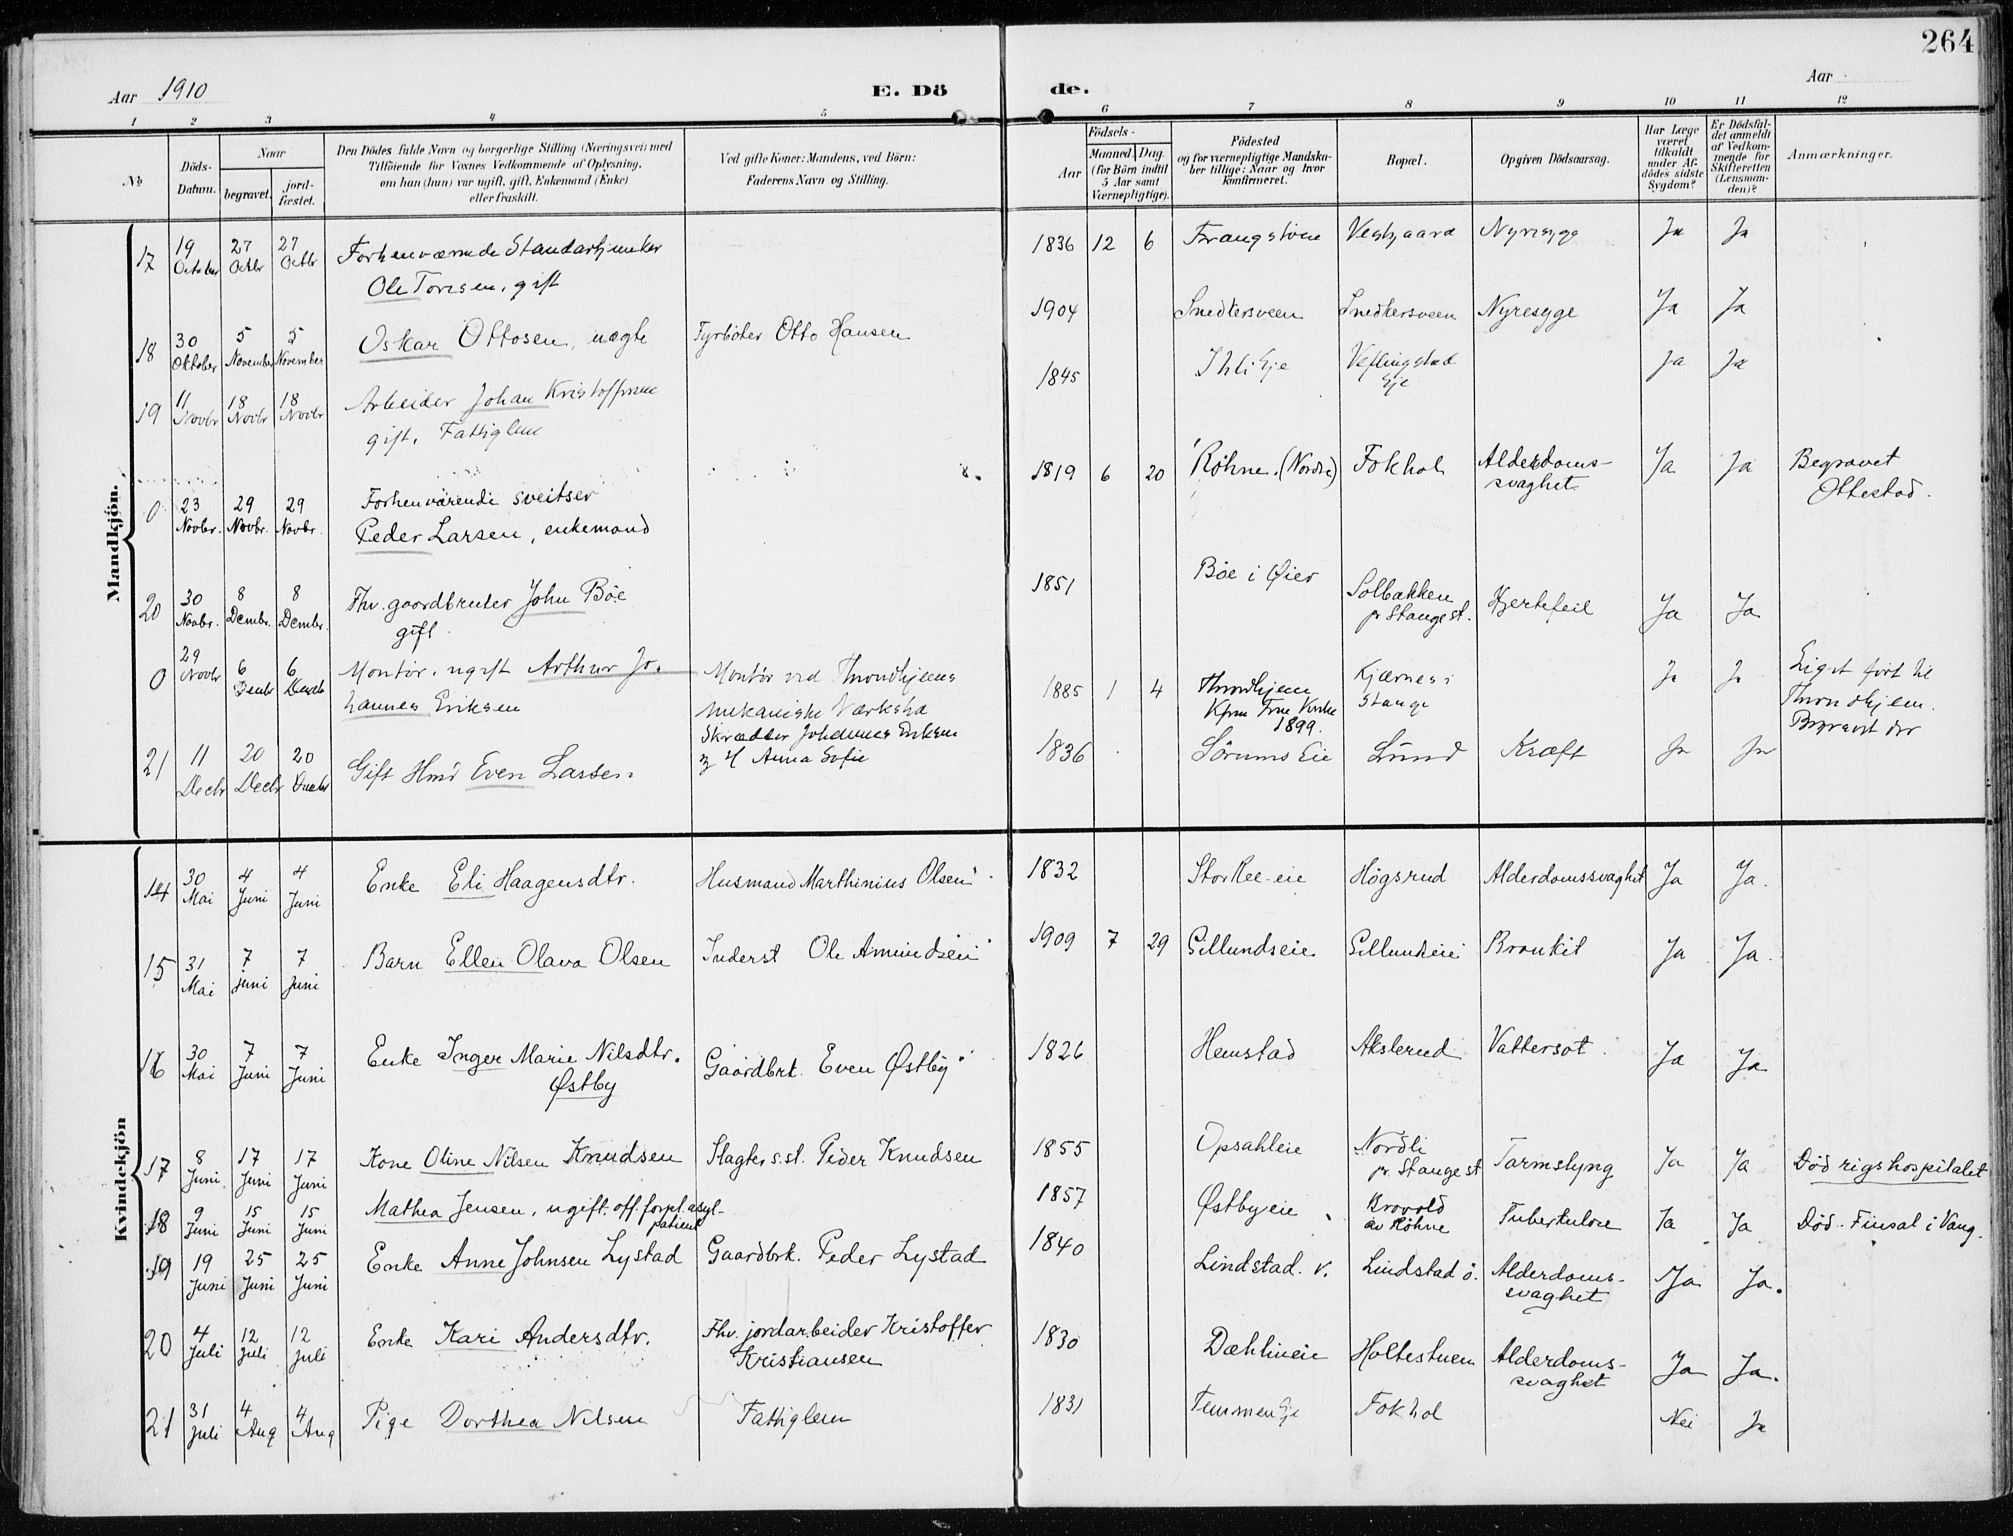 264
Aar 1910 E. Dö de. Aar
1 2 3 4 5 6 7 8 9 10 11 12
No
Döds-
Datum.
Naar
begravet.
jord-
fæstet.
Den Dödes fulde Navn og borgerlige Stilling (Næringsvei) med
Tilföiende for Voxnes Vedkommende af Oplysning,
om han (hun) var ugift, gift, Enkemand (Enke)
eller fraskilt.
Ved gifte Koner: Mandens, ved Börn:
Faderens Navn og Stilling.
Födsels-
Aar
Maaned. Dag.
(for Börn indtil
5 Aar samt
Værnepligtige).
Födested
og for værnepligtige Mandska-
ber tillige: Naar og hvor
konfirmeret.
Bopæl.
Opgiven Dödsaarsag.
Har Læge
været
tilkaldt
under Af-
dödes sidste
Sygdom?
Er Dödsfal-
det anmeldt
af Vedkom-
mende for
Skifteretten
(Lensman-
den)?
Anmærkninger.
Mandkjön.
17 19 October 27 Octbr 27 Octbr Forhenværende
Ole Toresen, gift
1836 12 6 Vestgaard Nyresyge Ja Ja
18 30 Oktober 5 November 5 November Oskar Ottosen, uægte Fyrböter Otto Hansen
1904 Snedkersveen Snedkersveen Nyresyge Ja Ja
19 11 Novbr 18 Novbr 18 Novbr Arbeider Johan Kristoffersen
gift, Fattiglem
1845 Ihli Eje Vestingstad
Eje Ja Ja
0 23 Novbr. 29 Novbr. 29 Novbr. Forhenværende sveitser
Peder Larsen, enkemand
1819 6 20 Röhne (Nordre) Fokhol Alderdoms-
svaghet Ja Ja Begravet
Ottestad.
20 30 Novbr. 8 Dembr. 8 Dembr. Fhv. gaardbruker John Böe
gift.
1851 Böe i Øier Solbakken
pr Stange st. Hjertefeil Ja Ja
0 29 Novbr 6 Dembr 6 Dembr Montör, ugift Arthur Jo-
hannes Eriksen
Montör ved Throndhjems
mekaniske Værksted
Skrædder Johannes Eriksen
og H Anna Sofie
1885 1 4 Throndhjem
Kfm Frue Kirke
1899. Kjærnes i
Stange Ja Ja Liget fört til
Throndhjem.
Begravet der
21 11 Decbr 20 Decbr 20 Decbr Gift Hmd Even Larsen
1836 Sörums Eie Lund Kræft Ja Ja
Kvindekjön
14 30 Mai 4 Juni 4 Juni Enke Eli Haagensdtr. Husmand Marthinius Olsen
1832 Storhee-eie Högsrud Alderdomssvaghet Ja Ja.
15 31 Mai 7 juni 7 juni Barn Ellen Olava Olsen Inderst Ole Amundsen
1909 7 29 Gillundseie Gillundseie Bronkit Ja Ja.
16 30 Mai 7 Juni 7 Juni Enke Inger Marie Nilsdtr.
Østby
Gaardbrk. Even Østby
1826 Hemstad Akslerud Vattersot. Ja Ja
17 8 Juni 17 Juni 17 Juni Kone Oline Nilsen Knudsen Slagter s.st. Peder Knudsen
1855 Opsahleie Nordli
pr. Stange st Tarmslyng Ja Ja Död rigshospitalet
18 9 Juni 15 Juni 15 Juni Mathea Jensen, ugift. off. forpl. asyl-
patient
1857 Østbyeie Brovold
av Röhne Tuberkulose Ja Ja Död. Finsal i Vang.
19 19 Juni 25 Juni 25 Juni Enke Anne Johnsen Lystad Gaardbrk. Peder Lystad
1840 Lindstad. v. Lindstad ö. Alderdoms-
svaghet Ja Ja.
20 4 Juli 12 juli 12 juli Enke Kari Andersdtr. Fhv. jordarbeider Kristoffer
Kristiansen
1830 Dæhlineie Holtestuen Alderdoms-
svaghet Ja Ja.
21 31 juli 4 Aug 4 Aug Pige Dorthea Nilsen Fattiglem
1831 Temmen Eje Fokhol Nei Ja